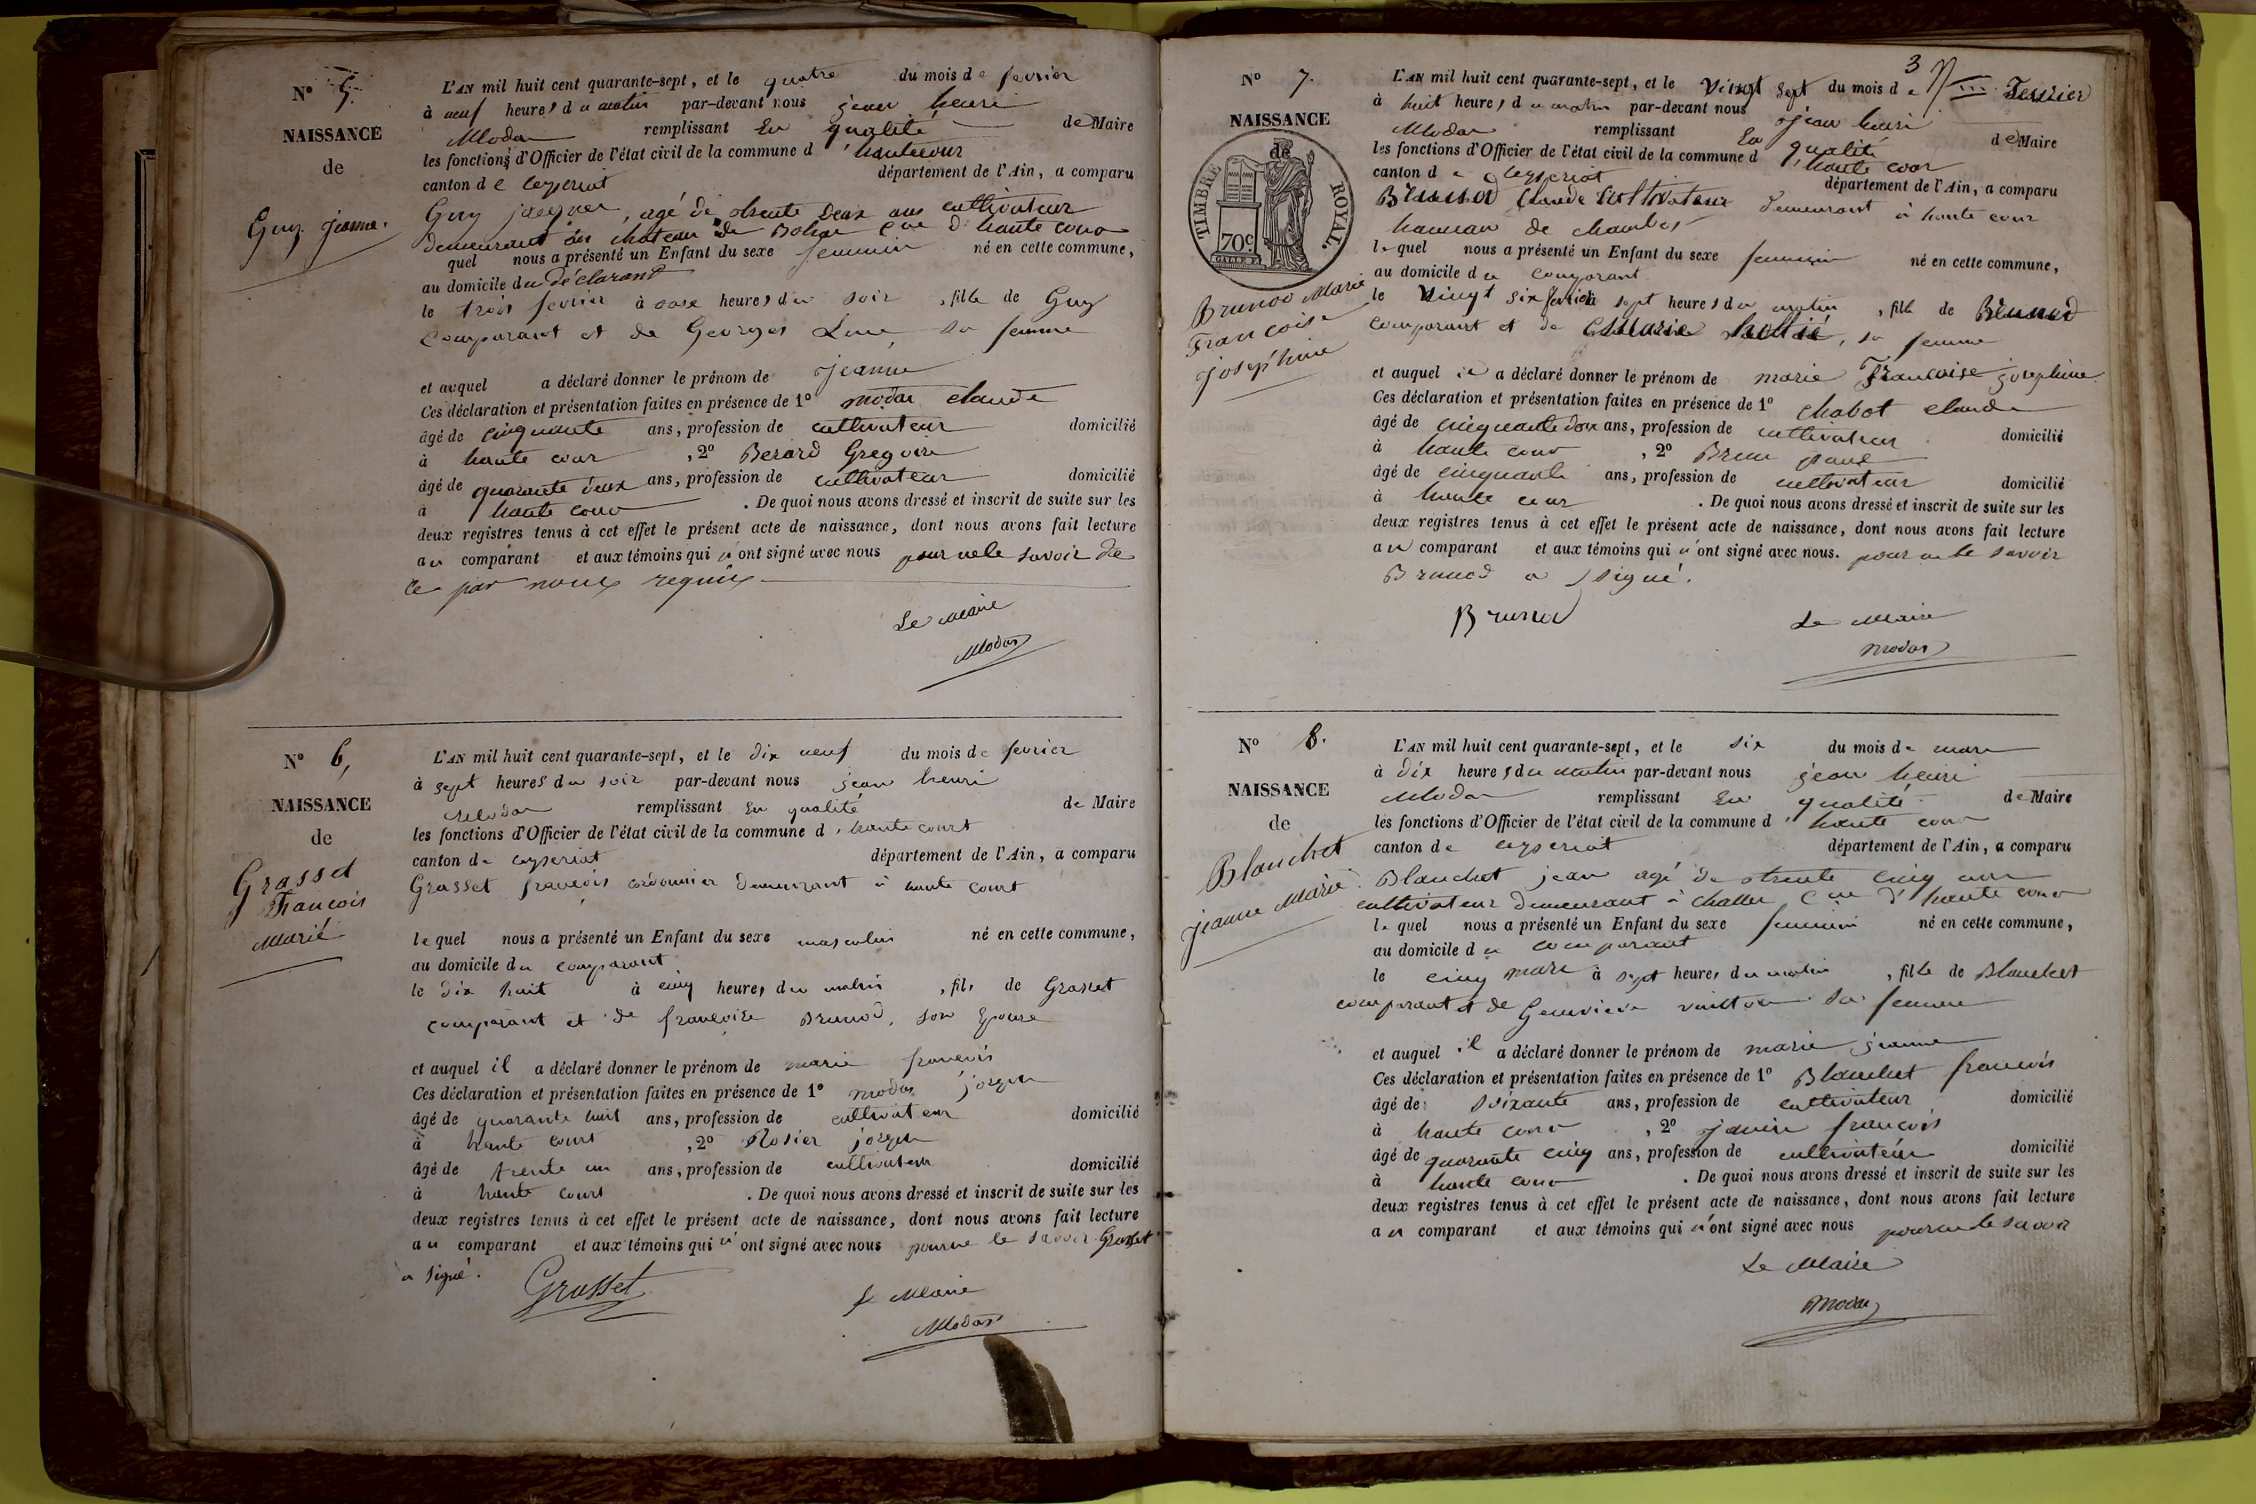 N° 5.
NAISSANCE
de
Guy jeanne.
L'AN mil huit cent quarante-sept, et le quatre du mois de fevrier
à neuf heures du matin par-devant nous jean henri
Modas remplissant En qualité de Maire
les fonctions d'Officier de l'état civil de la commune d'hautecour
canton de Ceyseriat département de l'Ain, a comparu
Guy jacques, agé de trente deux ans cultivateur
demeurant au chateau de Bohan Cne d'haute cour
quel nous a présenté un Enfant du sexe feminin né en cette commune,
au domicile du déclarant
le trois fevrier à onze heures du soir, fille de Guy
comparant et de Georges Line, sa femme
et auquel a déclaré donner le prénom de jeanne
Ces déclaration et présentation faites en présence de 1° modas claude
âgé de cinquante ans, profession de cultivateur domicilié
à haute cour, 2° Berard Gregoire
âgé de quarante deux ans, profession de cultivateur domicilié
à haute cour. De quoi nous avons dressé et inscrit de suite sur les
deux registres tenus à cet effet le présent acte de naissance, dont nous avons fait lecture
au comparant et aux témoins qui n'ont signé avec nous pour ne le savoir de
ce par nous requis
Le Maire
Modas
N° 6,
NAISSANCE
de
Grasset
Francois
Marie
L'AN mil huit cent quarante-sept, et le dix neuf du mois de fevrier
à sept heures du soir par-devant nous jean henri
Modas remplissant En qualité de Maire
les fonctions d'Officier de l'état civil de la commune d'hautecourt
canton de ceyseriat département de l'Ain, a comparu
Grasset francois cordonnier demeurant à haute court
lequel nous a présenté un Enfant du sexe masculin né en cette commune,
au domicile du comparant
le dix huit à cinq heures du matin, fils de Grasset
comparant et de francoise Brunod, son Epouse
et auquel il a déclaré donner le prénom de marie francois
Ces déclaration et présentation faites en présence de 1° modas joseph
âgé de quarante huit ans, profession de cultivateur domicilié
à haute court, 2° Rosier joseph
âgé de trente un ans, profession de cultivateur domicilié
à haute court. De quoi nous avons dressé et inscrit de suite sur les
deux registres tenus à cet effet le présent acte de naissance, dont nous avons fait lecture
au comparant et aux témoins qui n'ont signé avec nous pour ne le savoir Grasset
a signé.
Grasset
Le Maire
Modas
3
N° 7.
NAISSANCE
de
TIMBRE ROYAL.
70c
Brunod Marie
Francoise
josephine
L'AN mil huit cent quarante-sept, et le Vingt sept du mois de Fevrier
à huit heures du matin par-devant nous jean henri
Modas remplissant En qualité de Maire
les fonctions d'Officier de l'état civil de la commune d'haute cour
canton de Ceyseriat département de l'Ain, a comparu
Brunod Claude Cultivateur demeurant à haute cour
hameau de chambos
lequel nous a présenté un Enfant du sexe feminin né en cette commune,
au domicile du comparant
le Vingt six fevrier à sept heures du matin, fille de Brunod
comparant et de Marie, sa femme
et auquel il a déclaré donner le prénom de marie Francoise josephine
Ces déclaration et présentation faites en présence de 1° Chabot claude
âgé de cinquante deux ans, profession de cultivateur domicilié
à haute cour, 2° Brun paul
âgé de cinquante ans, profession de cultivateur domicilié
à haute cour. De quoi nous avons dressé et inscrit de suite sur les
deux registres tenus à cet effet le présent acte de naissance, dont nous avons fait lecture
au comparant et aux témoins qui n'ont signé avec nous. pour ne le savoir
Brunod a signé.
Brunod
Le Maire
Modas
N° 8.
NAISSANCE
de
Blanchet
jeanne Marie
L'AN mil huit cent quarante-sept, et le six du mois de mars
à dix heures du matin par-devant nous jean henri
Modas remplissant En qualité de Maire
les fonctions d'Officier de l'état civil de la commune d'haute cour
canton de ceyseriat département de l'Ain, a comparu
Blanchet jean agé de trente cinq ans
cultivateur demeurant à Challes Cne d'haute cour
lequel nous a présenté un Enfant du sexe feminin né en cette commune,
au domicile du comparant
le cinq mars à sept heures du matin, fille de Blanchet
comparant et de Genevieve sa femme
et auquel il a déclaré donner le prénom de marie jeanne
Ces déclaration et présentation faites en présence de 1° Blanchet francois
âgé de soixante ans, profession de cultivateur domicilié
à haute cour, 2° janin francois
âgé de quarante cinq ans, profession de cultivateur domicilié
à haute cour. De quoi nous avons dressé et inscrit de suite sur les
deux registres tenus à cet effet le présent acte de naissance, dont nous avons fait lecture
au comparant et aux témoins qui n'ont signé avec nous pour ne le savoir
Le Maire
Modas